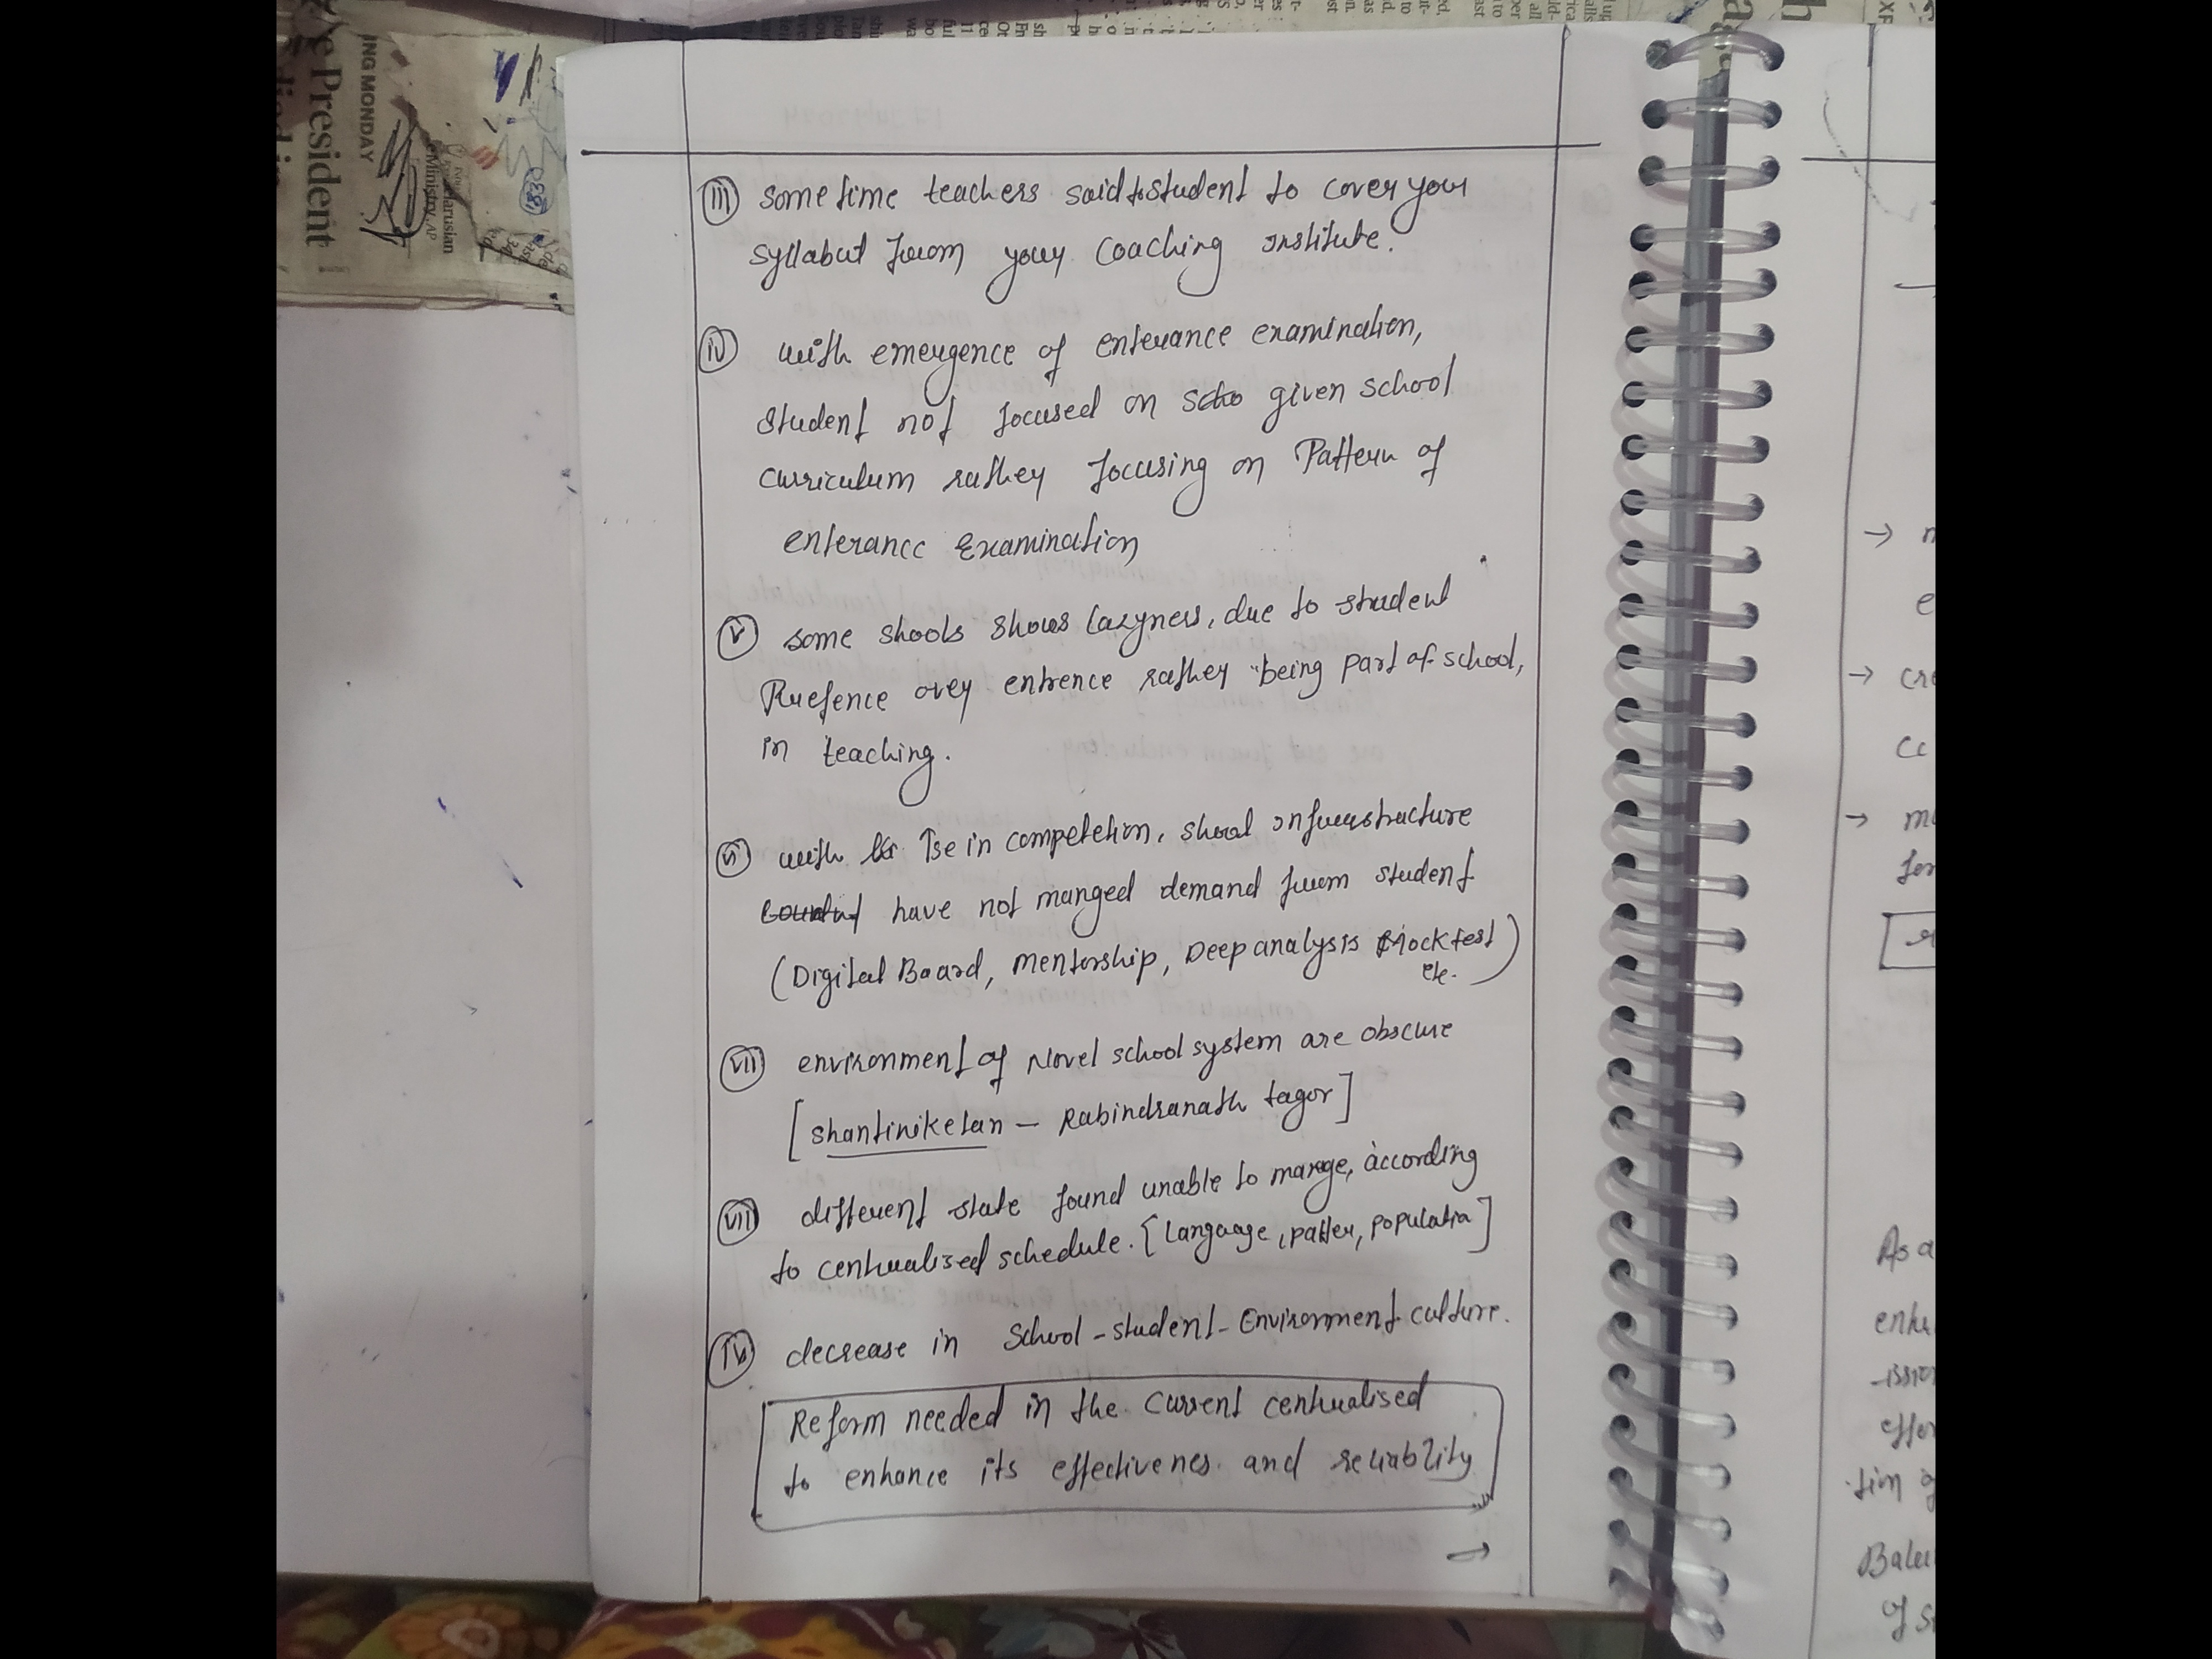 President
ING MONDAY
eMinistry. AP
larusian
(iii) some time teachers said to student to cover your
syllabut from your Coaching institute.
(iv) with emergence of enterance examination,
student not focused on scho given school
curriculum rather focusing on Pattern of
enterance Examination
(v) some shools shows lazyness, due to student
Prefence over entrence rather being part of school,
in teaching.
(vi) with ↑se in competetion, shool infrastracture
have not manged demand from student
(Digital Board, mentorship, Deep analysis Mock test
etc. )
(vii) environment of Novel school system are obscure
[shantiniketan - Rabindranath tagor]
(vii) different state found unable to mange, according
to centralised schedule. [language, patter, populatia]
(iv) decrease in School - student - Environment culture.
Reform needed in the current centralised
to enhance its effectivenes and reliablity
→
→
→ cre
→
As a